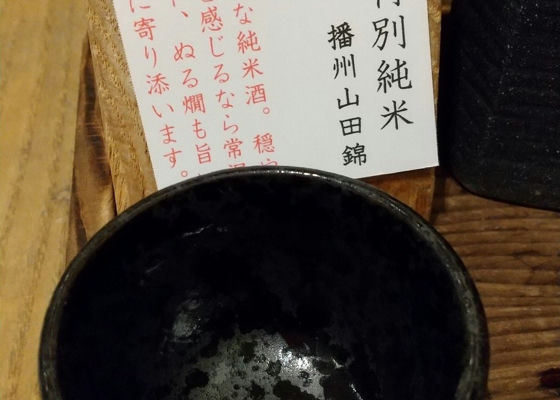 特別純米
播州山田錦
な純米酒。穏や
を感じるなら常温
、ぬる燗も旨い
に寄り添います。